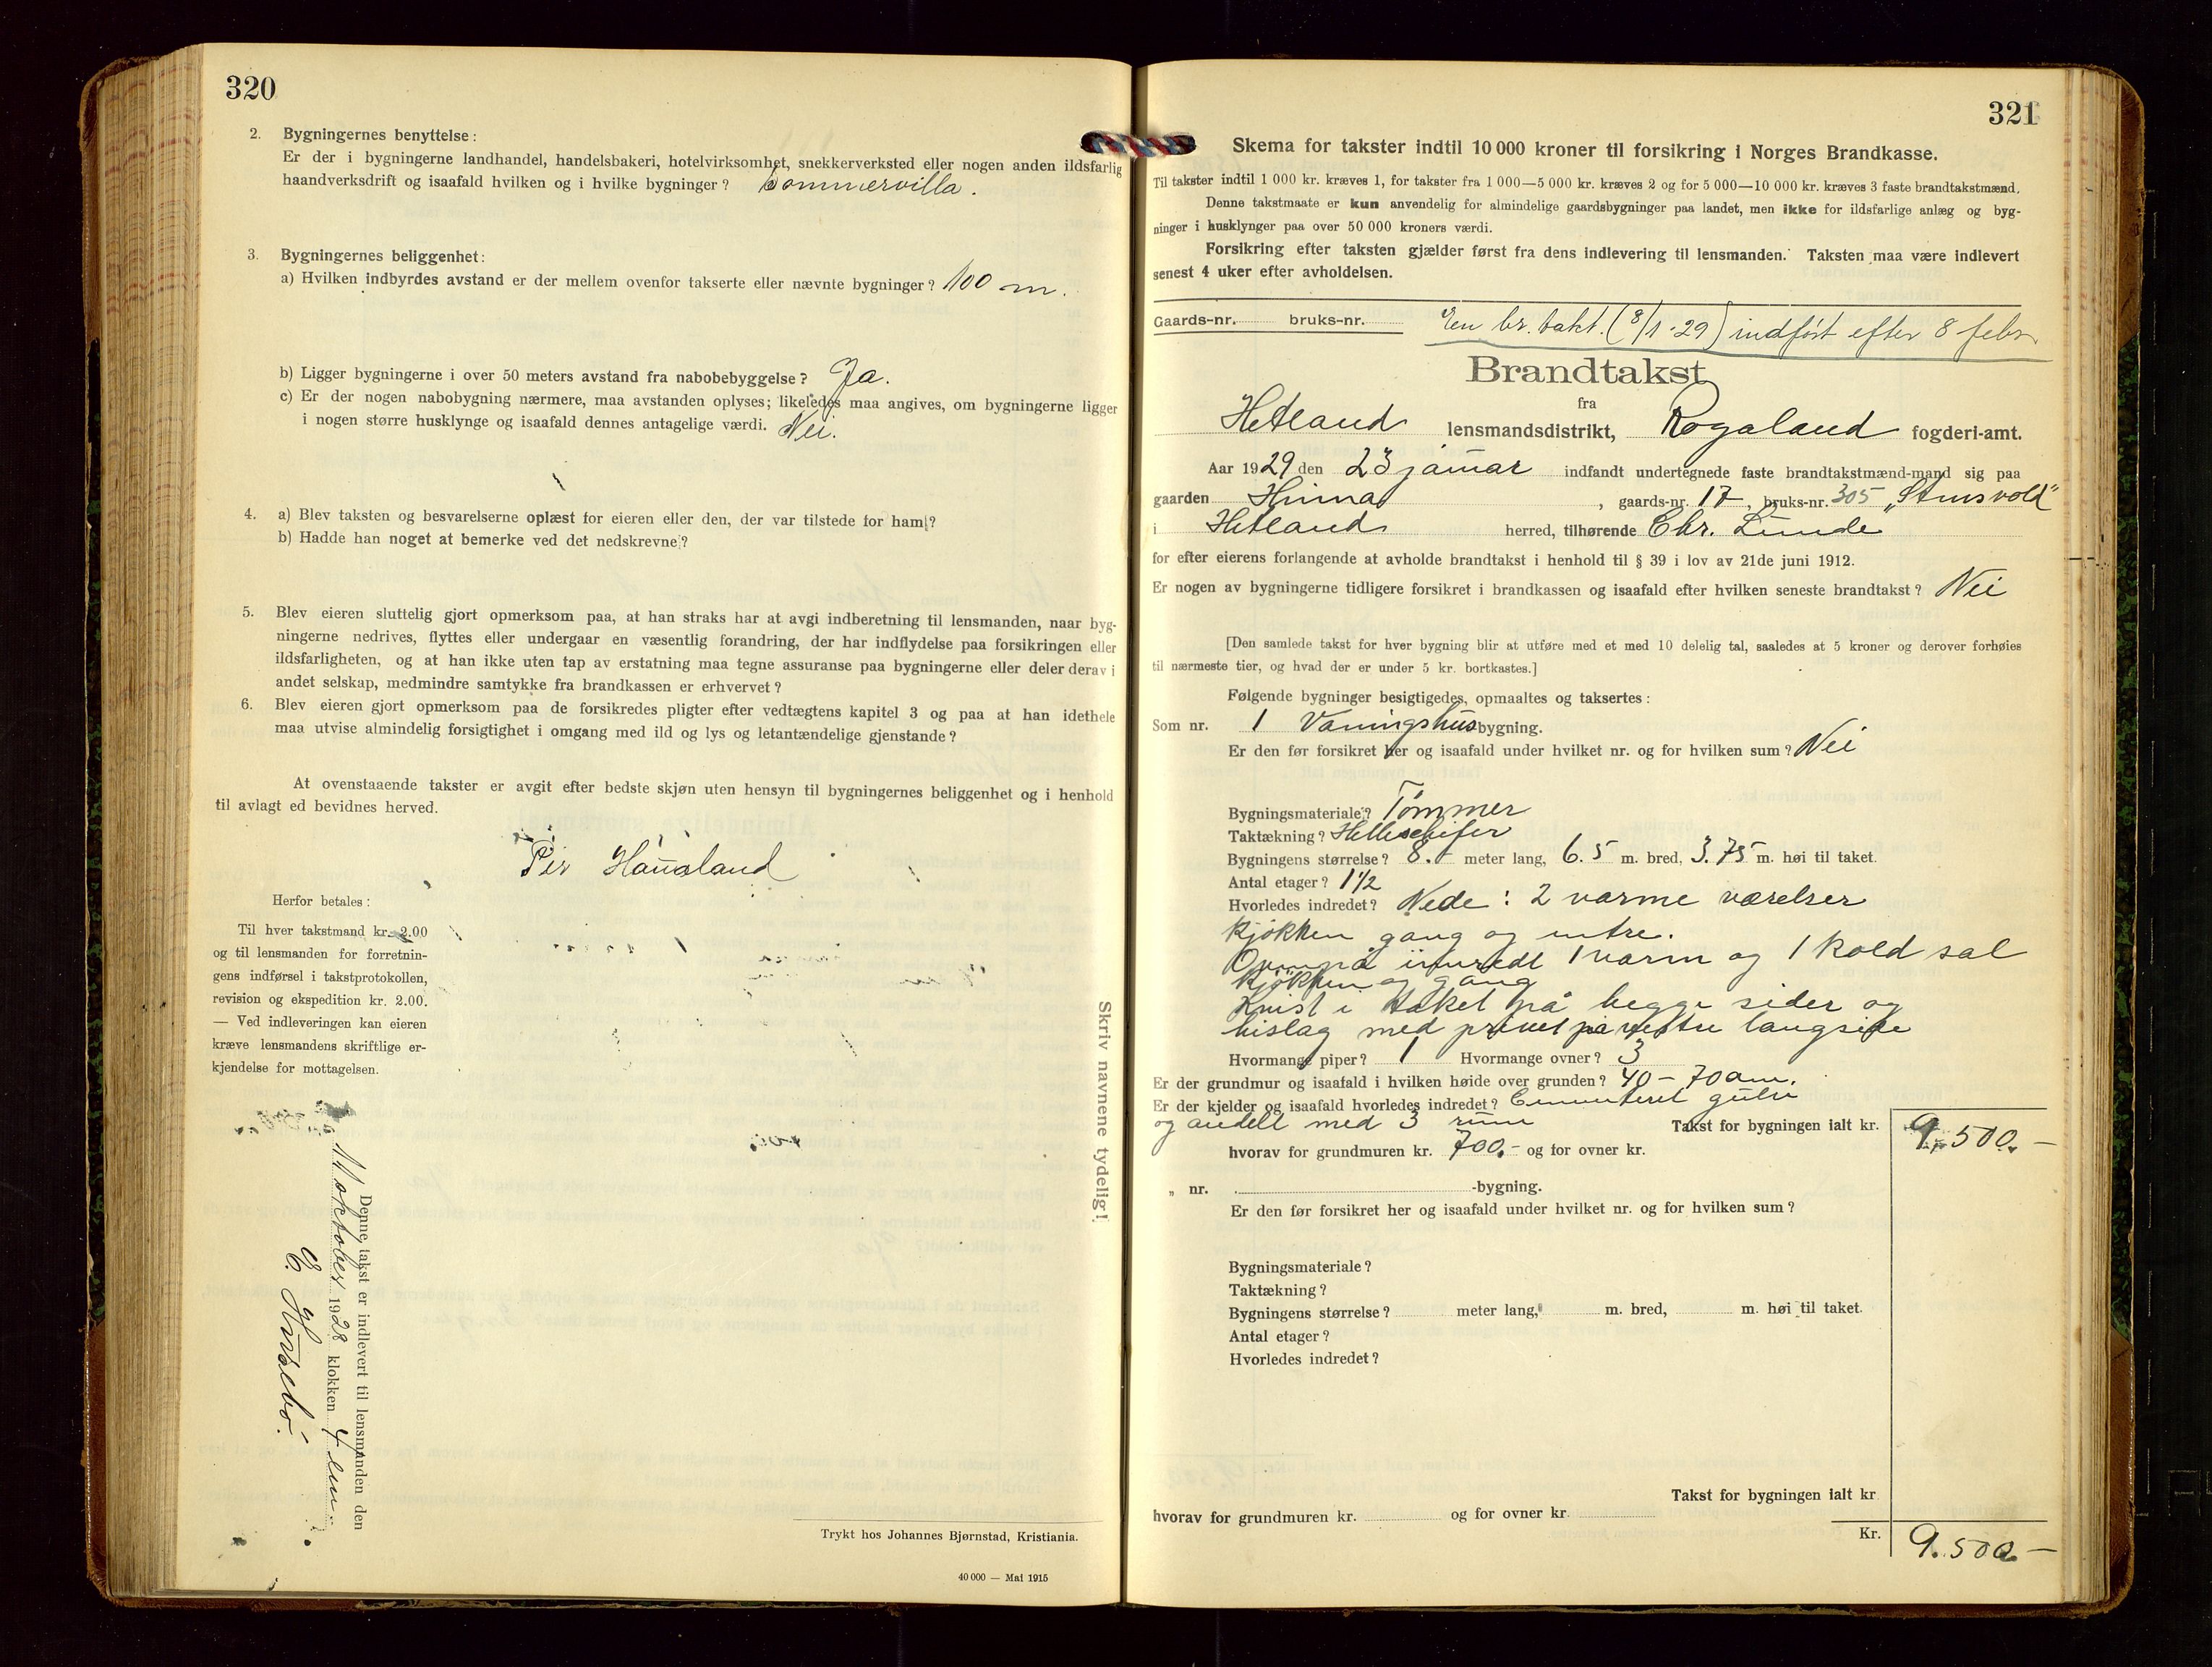 320
2. Bygningernes benyttelse:
Er der i bygningerne landhandel, handelsbakeri, hotelvirksomhet, snekkerverksted eller nogen anden ildsfarlig
haandverksdrift og isaafald hvilken og i hvilke bygninger? Sommervilla.
3. Bygningernes beliggenhet:
a) Hvilken indbyrdes avstand er der mellem ovenfor takserte eller nævnte bygninger? 100 m.
b) Ligger bygningerne i over 50 meters avstand fra nabobebyggelse? Ja.
c) Er der nogen nabobygning nærmere, maa avstanden oplyses; likeledes maa angives, om bygningerne ligger
i nogen større husklynge og isaafald dennes antagelige værdi. Nei.
4. a) Blev taksten og besvarelserne oplæst for eieren eller den, der var tilstede for ham?
b) Hadde han noget at bemerke ved det nedskrevne?
5. Blev eieren sluttelig gjort opmerksom paa, at han straks har at avgi indberetning til lensmanden, naar byg-
ningerne nedrives, flyttes eller undergaar en væsentlig forandring, der har indflydelse paa forsikringen eller
ildsfarligheten, og at han ikke uten tap av erstatning maa tegne assuranse paa bygningerne eller deler derav i
andet selskap, medmindre samtykke fra brandkassen er erhvervet?
6. Blev eieren gjort opmerksom paa de forsikredes pligter efter vedtægtens kapitel 3 og paa at han idethele
maa utvise almindelig forsigtighet i omgang med ild og lys og letantændelige gjenstande?
At ovenstaaende takster er avgit efter bedste skjøn uten hensyn til bygningernes beliggenhet og i henhold
til avlagt ed bevidnes herved.
Per Hausland
Herfor betales:
Til hver takstmand kr. 2.00
og til lensmanden for forretnin-
gens indførsel i takstprotokollen,
revision og ekspedition kr. 2.00.
— Ved indleveringen kan eieren
kræve lensmandens skriftlige er-
kjendelse for mottagelsen.
Denne takst er indlevert til lensmanden den
11 oktober 1928 klokken 4 em.
Skriv navnene tydelig!
Trykt hos Johannes Bjørnstad, Kristiania.
40 000 — Mai 1915
321
Skema for takster indtil 10 000 kroner til forsikring i Norges Brandkasse.
Til takster indtil 1 000 kr. kræves 1, for takster fra 1 000—5 000 kr. kræves 2 og for 5 000—10 000 kr. kræves 3 faste brandtakstmænd.
Denne takstmaate er kun anvendelig for almindelige gaardsbygninger paa landet, men ikke for ildsfarlige anlæg og byg-
ninger i husklynger paa over 50 000 kroners værdi.
Forsikring efter taksten gjælder først fra dens indlevering til lensmanden. Taksten maa være indlevert
senest 4 uker efter avholdelsen.
Gaards-nr. bruks-nr. En br. takt. (8/1-29) indført efter 8 febr.
Brandtakst
fra
Hetland lensmandsdistrikt, Rogaland fogderi-amt.
Aar 1929 den 23 januar indfandt undertegnede faste brandtakstmænd-mand sig paa
gaarden Hinna, gaards-nr. 17, bruks-nr. 305
i Hetland herred, tilhørende Chr. Lunde
for efter eierens forlangende at avholde brandtakst i henhold til § 39 i lov av 21de juni 1912.
Er nogen av bygningerne tidligere forsikret i brandkassen og isaafald efter hvilken seneste brandtakst? Nei
[Den samlede takst for hver bygning blir at utføre med et med 10 delelig tal, saaledes at 5 kroner og derover forhøies
til nærmeste tier, og hvad der er under 5 kr. bortkastes.]
Følgende bygninger besigtigedes, opmaaltes og taksertes:
Som nr. 1 Vaningshusbygning.
Er den før forsikret her og isaafald under hvilket nr. og for hvilken sum? Nei
Bygningsmateriale? Tømmer
Taktækning? Helleskifer
Bygningens størrelse? 8.- meter lang, 6.5 m. bred, 3.75 m. høi til taket.
Antal etager? 1½
Hvorledes indredet? Nede: 2 varme værelser
kjøkken gang og entre.
Ovenpå innredt 1 varm og 1 kold sal
kjøkken og gang
Kvist i taket på begge sider og
bislag med privet på vestre langside
Hvormange piper? 1 Hvormange ovner? 3
Er der grundmur og isaafald i hvilken høide over grunden? 40 – 70 cm.
Er der kjelder og isaafald hvorledes indredet? Cementeret gulv
og avdelt med 3 rum Takst for bygningen ialt kr. 9.500.—
hvorav for grundmuren kr. 700.- og for ovner kr.
„ nr. -bygning.
Er den før forsikret her og isaafald under hvilket nr. og for hvilken sum?
Bygningsmateriale?
Taktækning?
Bygningens størrelse? meter lang, m. bred, m. høi til taket.
Antal etager?
Hvorledes indredet?
Takst for bygningen ialt kr
hvorav for grundmuren kr. og for ovner kr.
Kr. 9.500.—